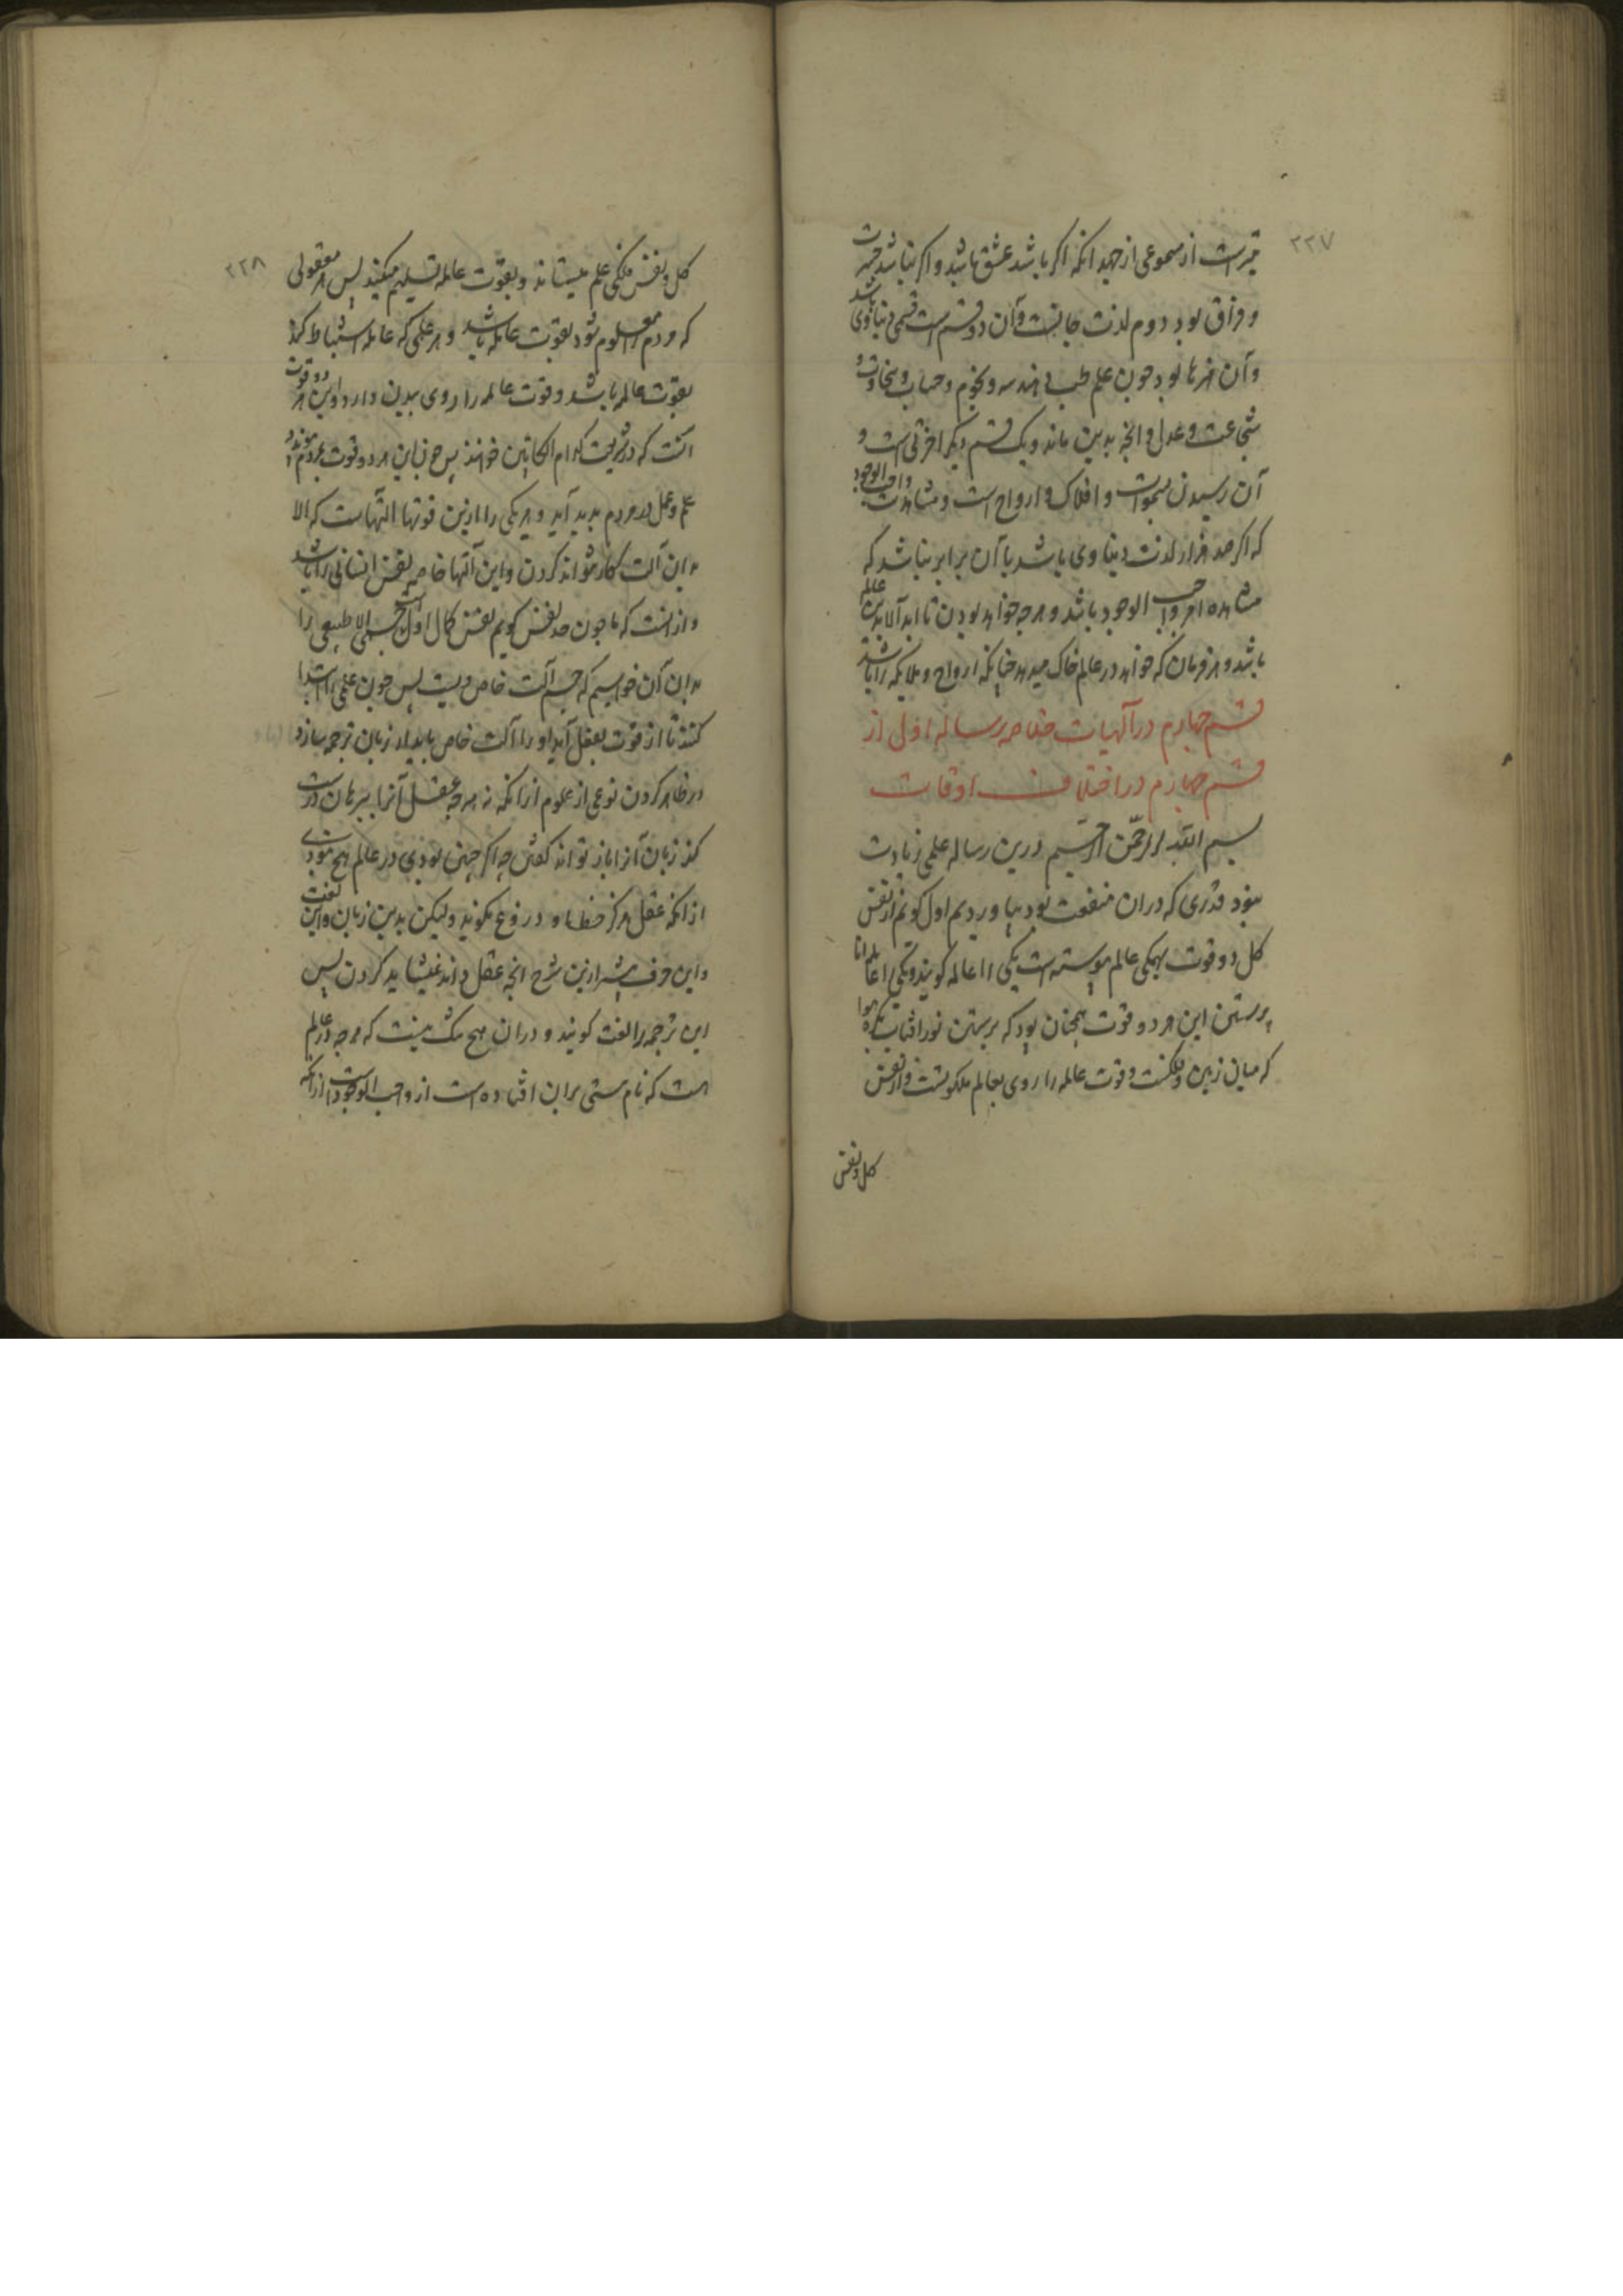 ۲۲۷
است از مسموعی از جهد آنکه اگر باشد عشق باشد و اگر نباشد
و فراق بود دوم لذت جانیست و آن دو قسم است قسمی دنیاوی باشد
و آن هنرها بود چون علم طب و هندسه و نجوم و حساب و سخاوت و
شجاعت و عدل و آنچه بدین ماند و یک قسم دیگر اخرتی است و
آن رسیدن بسموات و افلاک و ارواح است و مشاهدت واجب الوجود
که اگر صد هزار لذت دنیاوی باشد با آن برابر نباشد که
مشاهده امر واجب الوجود باشد و هرچه خواهد بودن تا ابد الابدین عالم
باشد و هر فرمان که خواهد در عالم خاک میدهد چنانکه ارواح و ملایکه را باشد
قسم چهارم در آلهیات خلاصه رساله اول از
قسم چهارم در اختلاف اوقات
بسم الله الرحمن الرحیم درین رساله علمی زیادت
نبود قدری که در ان منفعت بود بیاوردیم اول گویم از نفس
کل دو قوت بهمگی عالم پیوسته است یکی را عالمه گویند و یکی را عامله اما
پیوستن این هر دو قوت همچنان بود که پیوستن نور افتاب بکره هوا
که میان زمین و فلکست و قوت عالمه را روی بعالم ملکوتست و از نفس
کل و نفس
۲۲۸
کل و نفس فلکی علم میستاند و بقوت عامله تسلیم میکند پس هر معقولی
که مردم را معلوم شود بقوت عامله باشد و هر علمی که عامله استنباط کند
بقوت عالمه باشد و قوت عامله را روی بدین دارد و این هر دو قوت
آنست که در شریعت کرام الکاتبین خوانند پس چون این هر دو قوت بمردم پیوندد
علم و عمل در مردم پدید آید و هر یکی را ازین قوتها التهاست که الا
بدان آلت کار نتواند کردن و این آلتها خاصه نفس انسانی را باشد
و از انست که ما چون حد نفس گویم نفس کمال اول است جسمی الا طبیعی را
بدان آن خواهیم که جسم آلت خاص ویست پس چون علمی را ابتدا
کنند تا از قوت بفعل آید او را آلت خاص باید از زبان ترجمه سازد
در ظاهر کردن نوعی از علوم از انکه نه هرچه عقل آنرا ببرهان درست
کند زبان آنرا باز تواند گفتن چه اگر چنین بودی در عالم هیچ نبودی
از انکه عقل هرگز خطا و دروغ نگوید ولیکن بدین زبان و این لغت
و این حرف بیشتر ازین شرح انچه عقل داند نمیشاید کردن پس
این ترجمه را لغت گویند و در ان هیچ شک نیست که هرچه در عالم
است که نام هستی بر ان افتاده است از واجب الوجود است از انکه